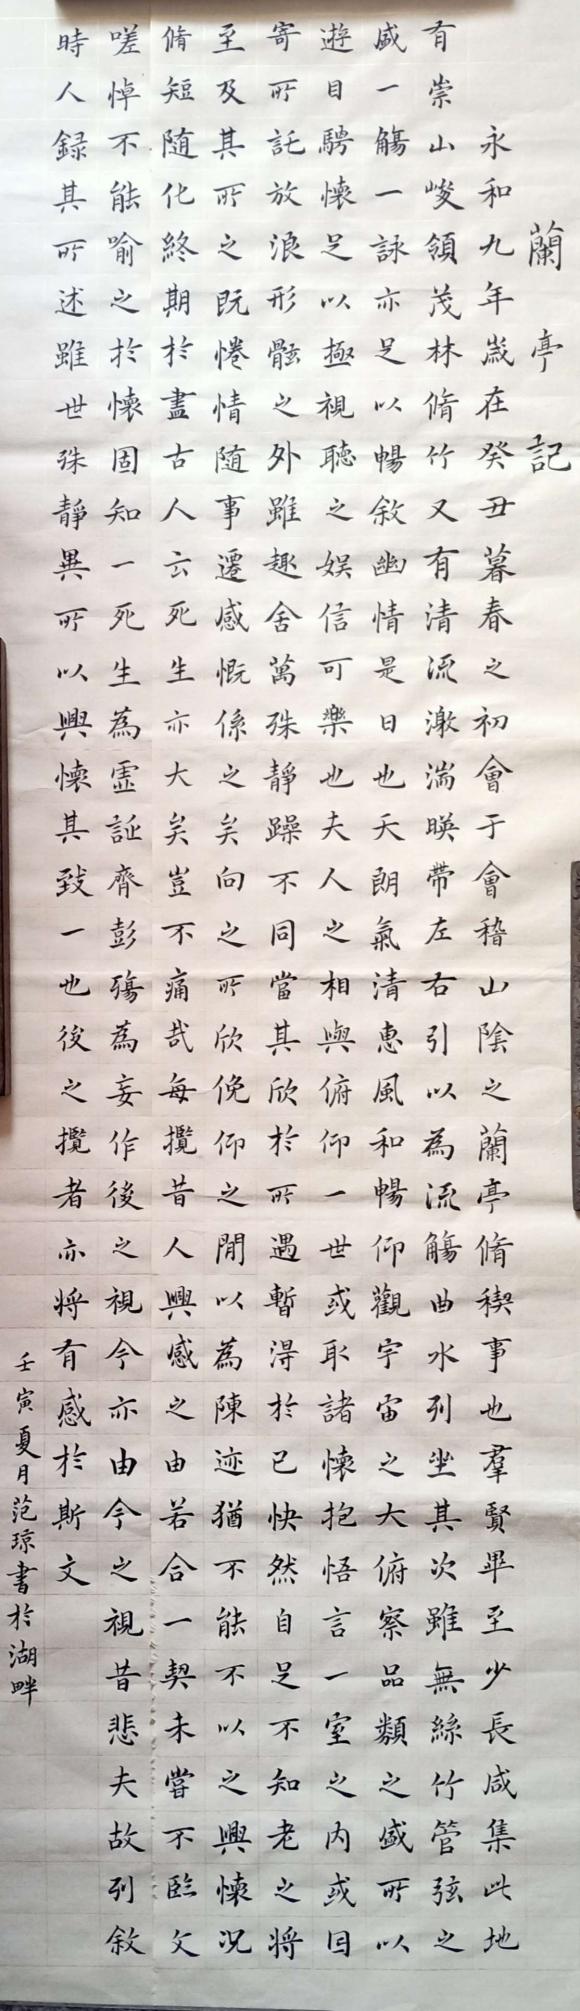 蘭亭記
永和九年嵗在癸丑暮春之初會于會稽山陰之蘭亭脩稧事也羣賢畢至少長咸集此地
有崇山峻領茂林脩竹又有清流激湍暎帶左右引以為流觴曲水列坐其次雖無絲竹管弦之
盛一觴一詠亦足以暢敘幽情是日也天朗氣清惠風和暢仰觀宇宙之大俯察品類之盛所以
遊目騁懷足以極視聽之娛信可樂也夫人之相與俯仰一世或取諸懷抱悟言一室之內或因
寄所託放浪形骸之外雖趣舍萬殊靜躁不同當其欣於所遇暫得於己快然自足不知老之將
至及其所之既惓情随事遷感慨係之矣向之所欣俛仰之閒以為陳迹猶不能不以之興懷況
脩短随化終期於盡古人云死生亦大矣豈不痛哉每攬昔人興感之由若合一契未嘗不臨文
嗟悼不能喻之於懷固知一死生為虛誕齊彭殤為妄作後之視今亦由今之視昔悲夫故列敘
時人録其所述雖世殊靜異所以興懷其致一也後之攬者亦将有感於斯文
壬寅夏月范琼書於湖畔